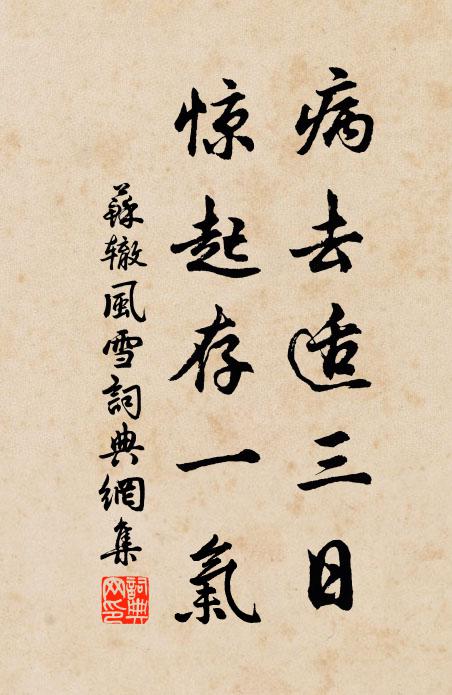 病去适三日
惊起存一氣
蘇辙風雪詞典網集
詞典网印